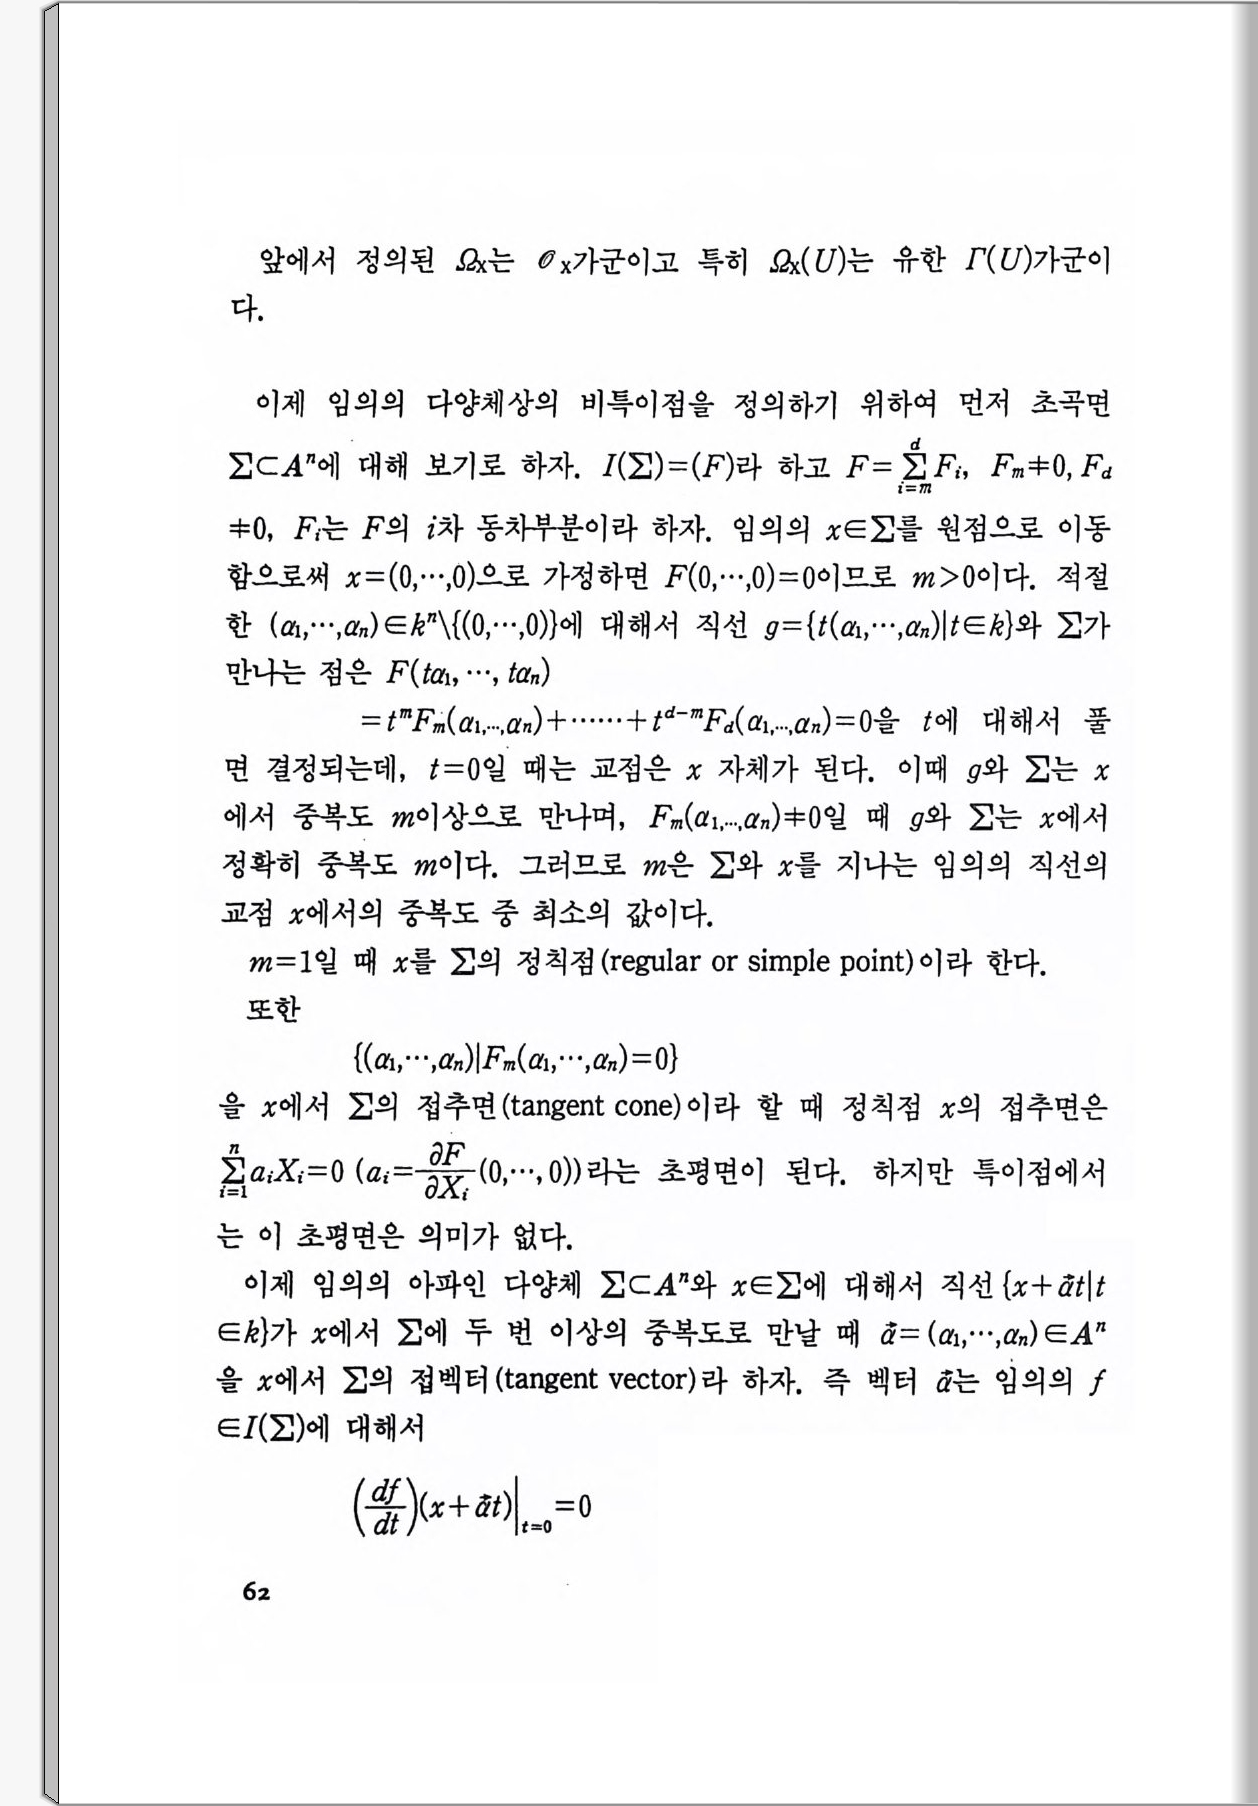 앞에서 정의된 Ωx는 𝒪x가군이고 특히 Ωx(U)는 유한 Γ(U)가군이
다.
이제 임의의 다양체상의 비특이점을 정의하기 위하여 먼저 초곡면
∑⊂Aⁿ에 대해 보기로 하자. I(∑)=(F)라 하고 F=∑_{i=m}^{d}F_i, F_m≠0, F_d
≠0, F_i는 F의 i차 동차부분이라 하자. 임의의 x∈∑를 원점으로 이동
함으로써 x=(0,⋯,0)으로 가정하면 F(0,⋯,0)=0이므로 m>0이다. 적절
한 (α₁,⋯,αₙ)∈kⁿ\{(0,⋯,0)}에 대해서 직선 g={t(α₁,⋯,αₙ)|t∈k}와 ∑가
만나는 점은 F(tα₁, ⋯, tαₙ)
=t^mF_m(α₁,...,αₙ)+⋯⋯+t^{d-m}F_d(α₁,...,αₙ)=0을 t에 대해서 풀
면 결정되는데, t=0일 때는 교점은 x 자체가 된다. 이때 g와 ∑는 x
에서 중복도 m이상으로 만나며, F_m(α₁,...,αₙ)≠0일 때 g와 ∑는 x에서
정확히 중복도 m이다. 그러므로 m은 ∑와 x를 지나는 임의의 직선의
교점 x에서의 중복도 중 최소의 값이다.
m=1일 때 x를 ∑의 정칙점(regular or simple point)이라 한다.
또한
{(α₁,⋯,αₙ)|F_m(α₁,⋯,αₙ)=0}
을 x에서 ∑의 접추면(tangent cone)이라 할 때 정칙점 x의 접추면은
∑_{i=1}^{n}a_iX_i=0 (a_i=∂F/∂X_i(0,⋯, 0))라는 초평면이 된다. 하지만 특이점에서
는 이 초평면은 의미가 없다.
이제 임의의 아파인 다양체 ∑⊂Aⁿ와 x∈∑에 대해서 직선{x+a⃗t|t
∈k}가 x에서 ∑에 두 번 이상의 중복도로 만날 때 a⃗=(α₁,⋯,αₙ)∈Aⁿ
을 x에서 ∑의 접벡터(tangent vector)라 하자. 즉 벡터 a⃗는 임의의 f
∈I(∑)에 대해서
(df/dt)(x+a⃗t)|_{t=0}=0
62